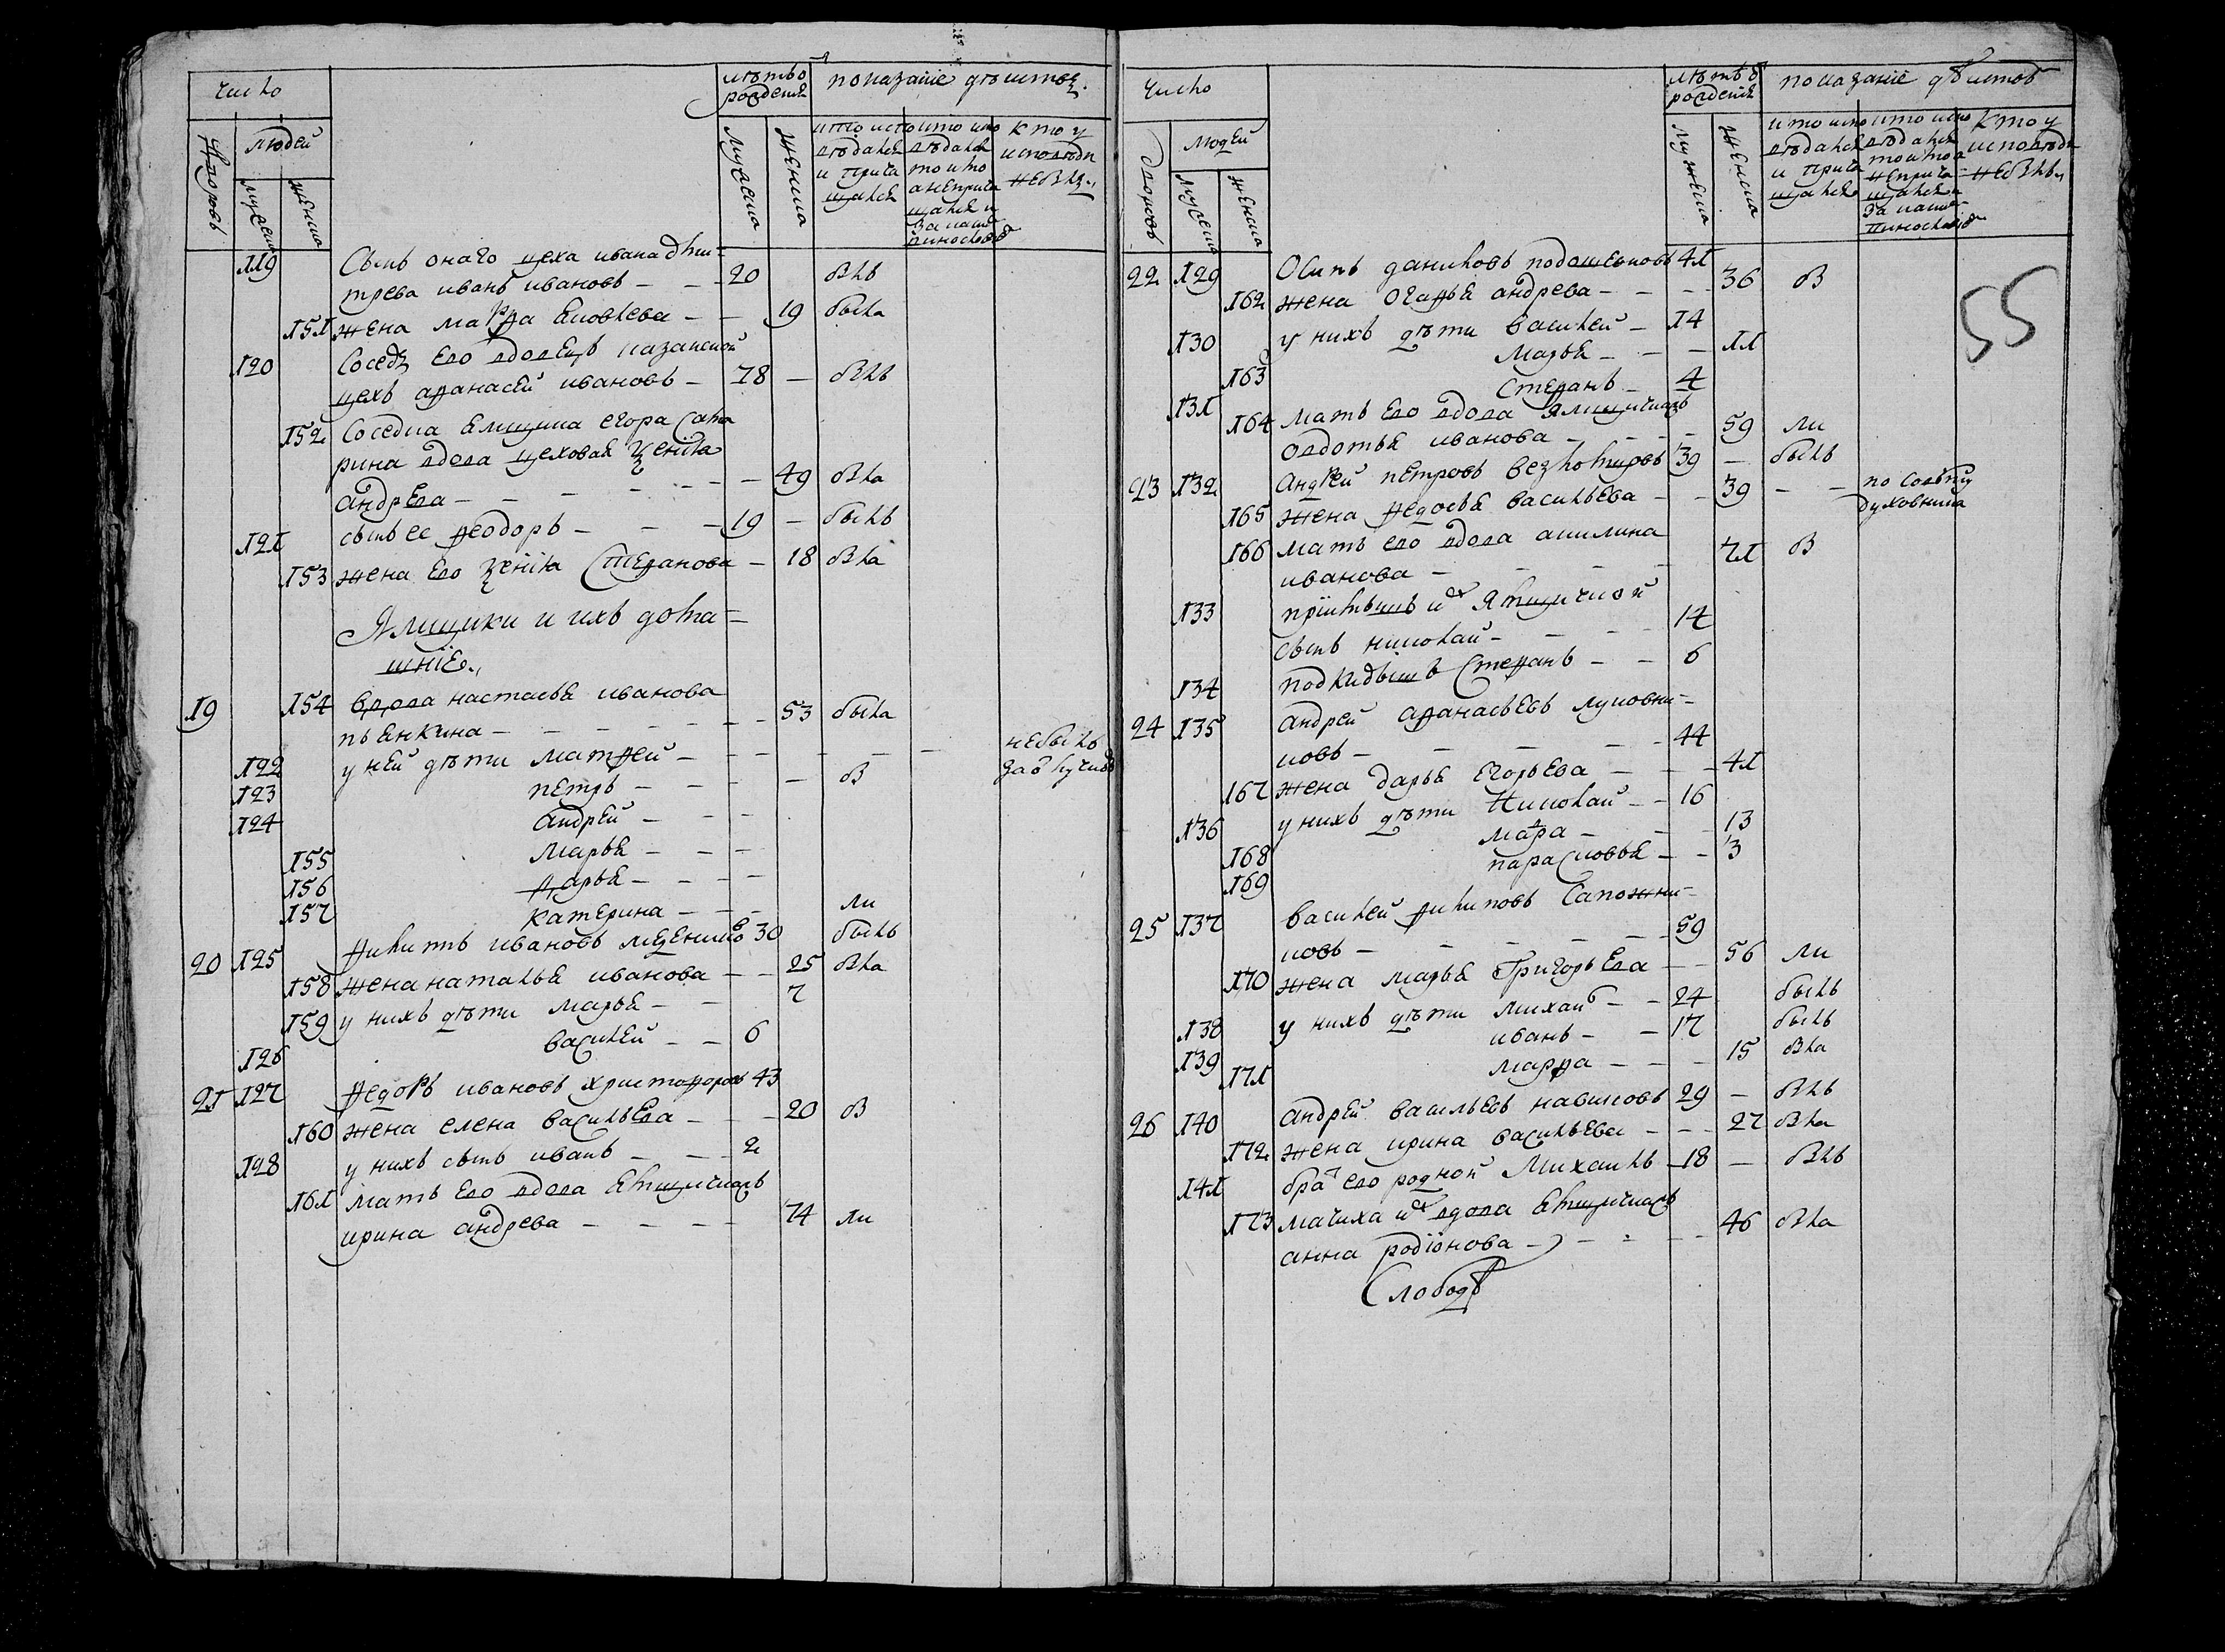 число
лѣтъ о
рожденiя
показанiе дѣиствъ
дворовъ
людей
мужеска
женска
мужеска
женска
кто испо
вѣдался
и прича
щался
кто испо
вѣдался
токмо
а неприча
щался и
за какимъ
кто у
исповѣди
не былъ
119 Сынъ онаго цеха ивана дми=
трева иванъ ивановъ - - - 20 былъ
151 жена марѳа яковлева - - 19 была
120 Сосед ево вдовецъ казанской
цехъ аѳанасей ивановъ - 78 - былъ
152 Соседка ямщика егора
вдова цеховая
андрева - - - - - - 49 была
121 сынъ ее ѳеодоръ - - - 19 - былъ
153 жена ево Стеѳанова - 18 была
Ямщики и ихъ дома=
шнiе
19 154 вдова настасья иванова
- - - - - 53 была
122 у ней дѣти матѳей - - - - - - не былъ
123 петръ - - - - б за
124 андрей - - -
155 марья - - -
156 дарья - - - -
157 катерина - - - ли
20 125 ѳилипъ ивановъ 30 былъ
158 жена наталья иванова - - 25 была
159 у нихъ дѣти марья - - 7
126 василей - - 6
21 127 ѳедоръ ивановъ христоѳоровъ 43
160 жена елена васильева - - - 20 б
128 у нихъ сынъ иванъ - - - 2
161 мать ево вдова ямщичиха
ирина андрева - - - - 74 ли
число
лѣтъ о
рожденiя
показанiе дѣиствъ
дворовъ
людей
мужеска
женска
мужеска
женска
кто испо
вѣдался
и прича
щался
кто испо
вѣдался
токмо а
неприча
щался и
за каким
кто у
исповѣди
не былъ
55
22 129 Осипъ даниловъ подошевновъ 41
162 жена огаѳья андрева - - - - 36 б
130 у нихъ дѣти василей - 14
163 марья - - - 11
131 Стеѳанъ - 4
164 мать ево вдова ямщичиха
овдотья иванова - - - - 59 ли
23 132 андрей петровъ 39 - былъ
165 жена ѳедосья васильева - - 39 - - по совѣту
духовника
166 мать ево вдова акилина
иванова - - - - 71 б
133 ихъ ямщичиой
сынъ николай - - - - 14
134 подкидышъ Стеѳанъ - - 6
24 135 андрей аѳанасьевъ луковни=
ковъ - - - - - 44
167 жена дарья егорьева - - - - 41
136 у нихъ дѣти николай - - 16
168 марѳа - - - 13
169 парасковья - - 3
25 137 василей ѳилиповъ Сапожни=
ковъ - - - - - - 59
170 жена марья Григорьева - - 56 ли
138 у нихъ дѣти михаил - - 24 былъ
139 иванъ - - 17 былъ
171 марѳа - - - 15 была
26 140 андрей васильевъ 29 - былъ
172 жена ирина васильева - - - 27 была
141 брат ево родной Михаилъ - 18 - былъ
173 мачиха их вдова ямщичиха
анна родiонова - - - - - 46 была
Слободѣ